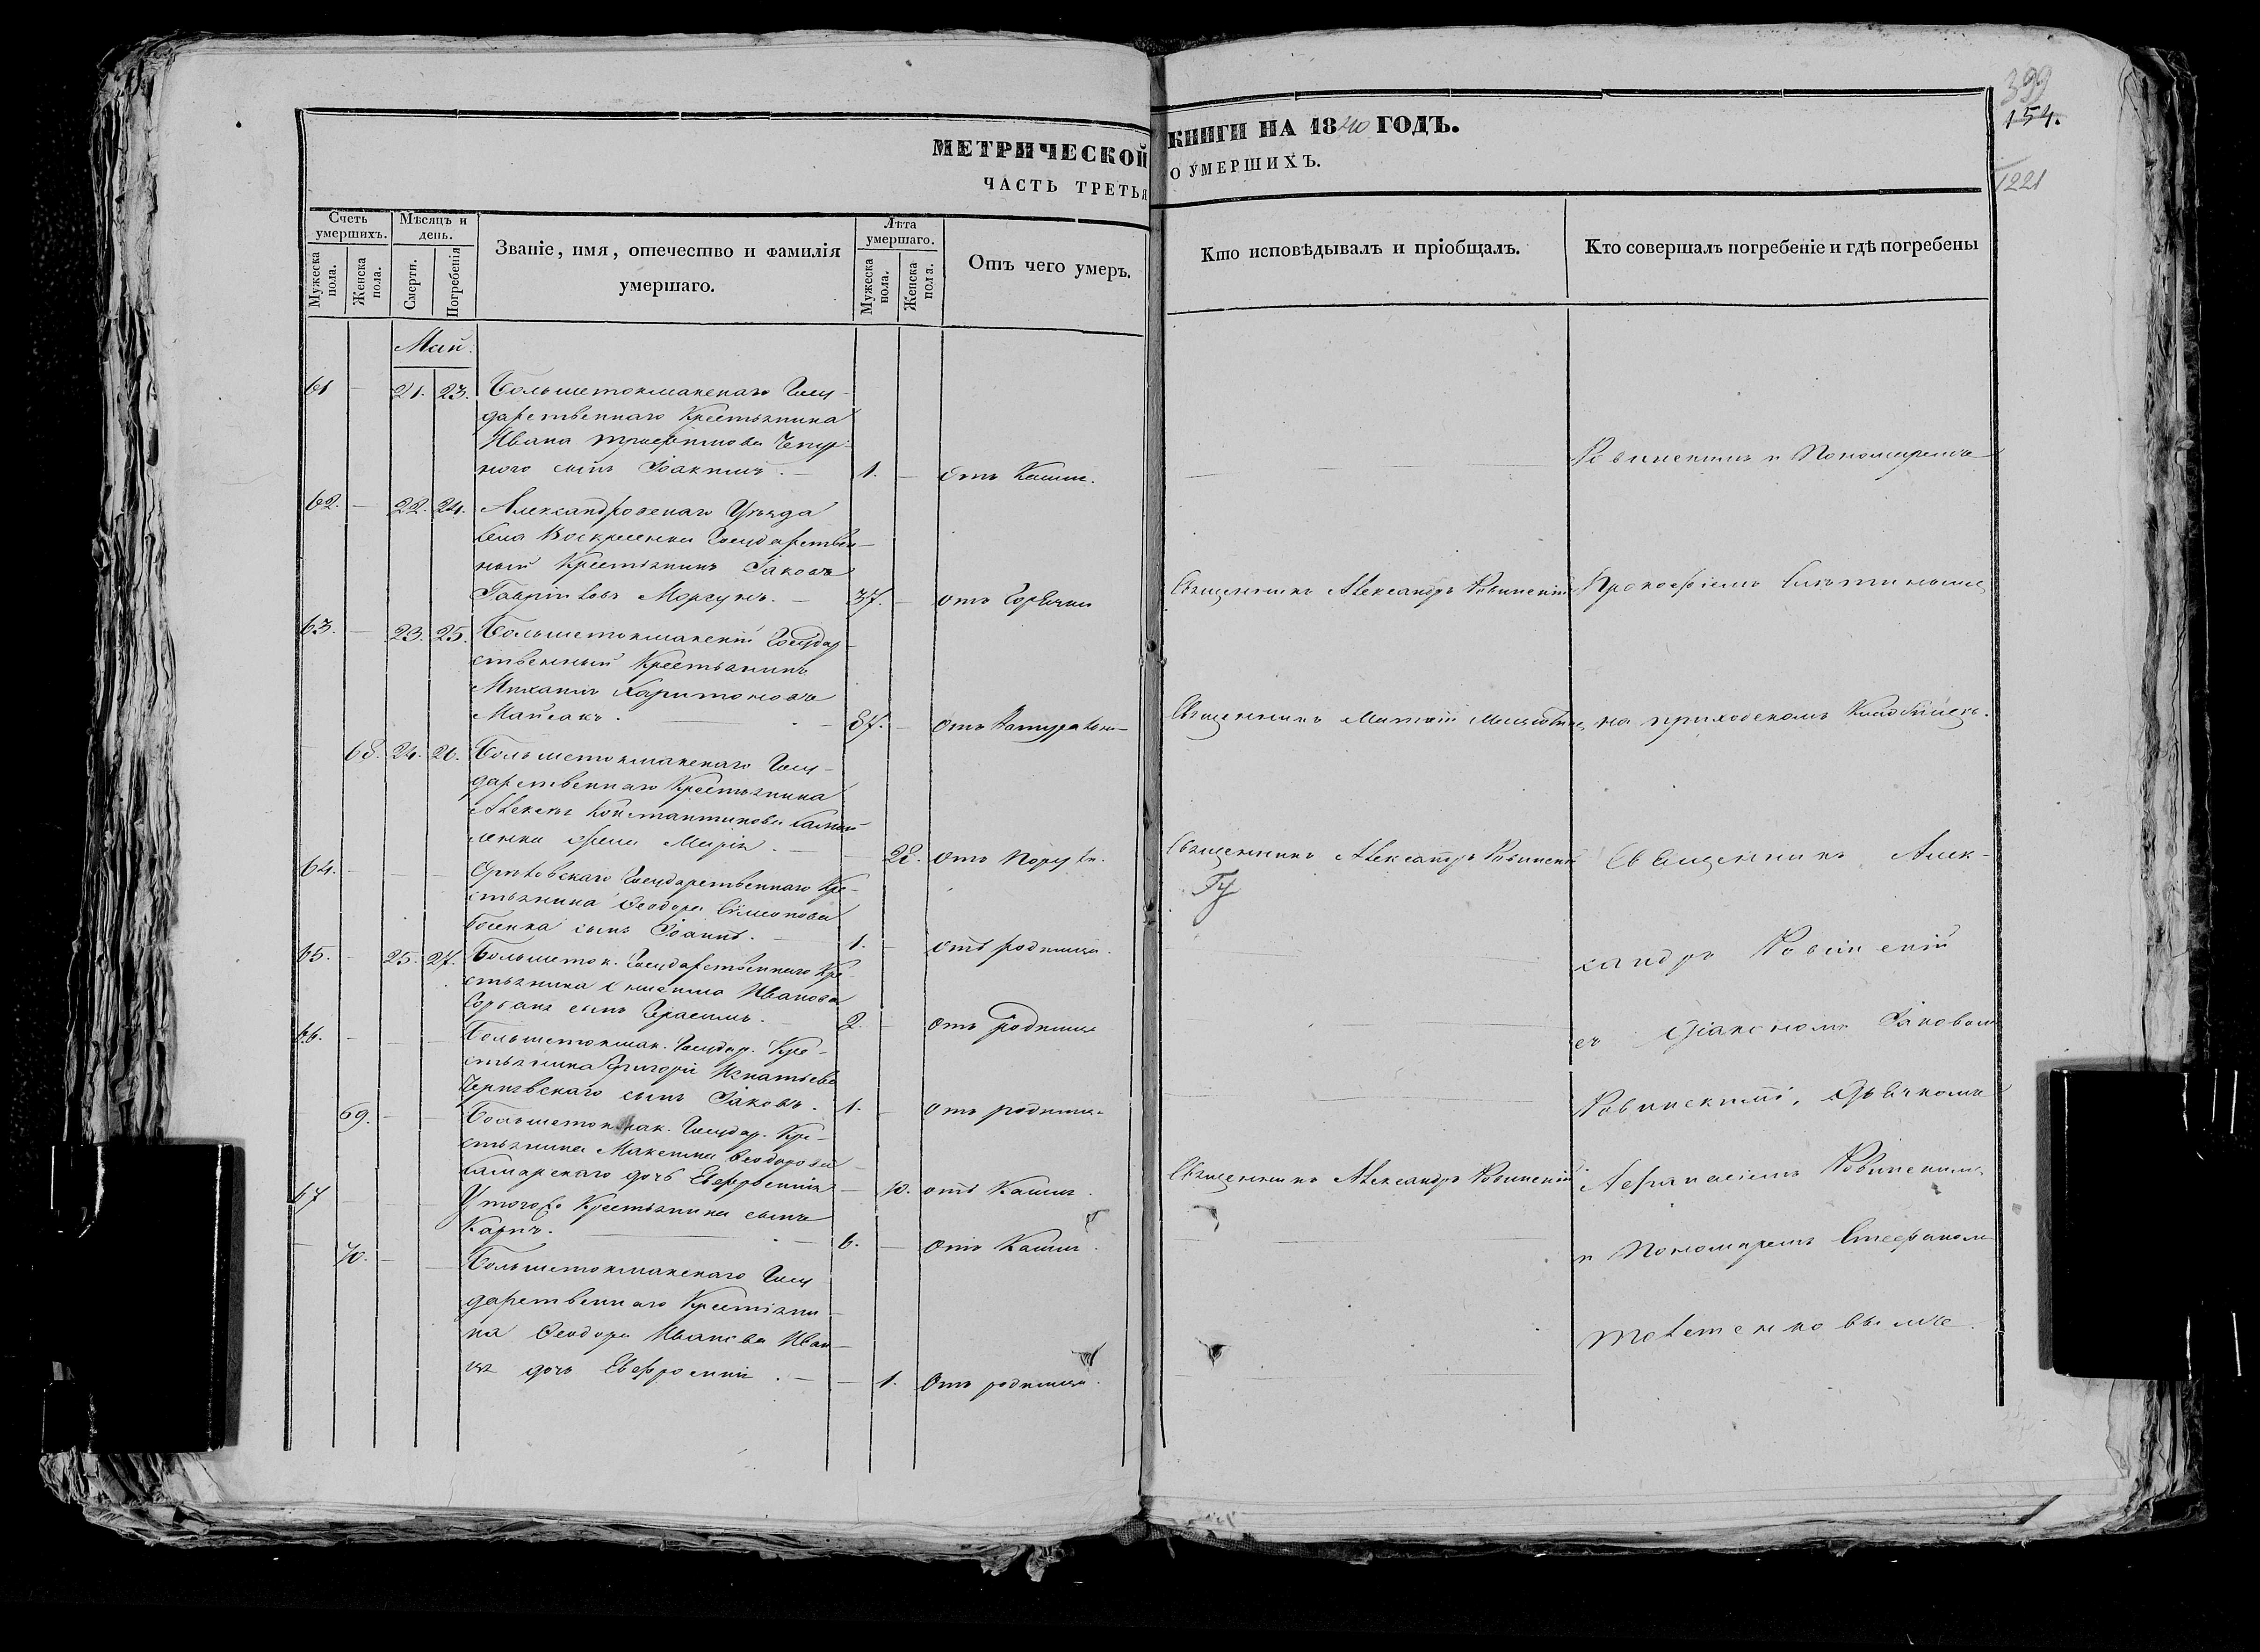 399
154.
1221
МЕТРИЧЕСКОЙ КНИГИ НА 1840 ГОДЪ.
ЧАСТЬ ТРЕТЬЯ О УМЕРШИХЪ.
Счетъ умершихъ.
Мужеска пола.
Женска пола.
Мѣсяцъ и день.
Смерти.
Погребенія
Званіе, имя, отечество и фамилія
умершаго.
Лѣта умершаго.
Мужеска пола.
Женска пола.
Отъ чего умеръ.
Кто исповѣдывалъ и пріобщалъ.
Кто совершалъ погребеніе и гдѣ погребены
Май.
61 — 21. 23. Большетокмакскаго Госу-
дарственнаго Крестьянина
Ивана
наго сынъ Іоакимъ. — 1. — Отъ Кашля.
Ровинскимъ и Пономаремъ
62. — 22. 24. Александровскаго Уѣзда
Села Воскресенки Государствен-
ный Крестьянинъ Іаковъ
Гавріиловъ Моргунъ. — 37. — отъ Горячки
Священникъ Александръ Ровинскій
Прокофіемъ
63. — 23. 25. Большетокмакскій Государ-
ственный Крестьянинъ
Михаилъ Харитоновъ
Майсакъ. — 87. — отъ Натуральн—
Священникъ
на приходскомъ Кладбищѣ.
— 68. 24. 26. Большетокмакскаго Госу-
дарственнаго Крестьянина
Алексѣя Константинова
жена Марія. — 28. отъ
Священникъ Александръ Ровинскій
Священникъ Алек-
64. — — — Орѣховскаго Государственнаго Кре-
стьянина Ѳеодора Симеонова
сынъ Іоаннъ. — 1. — отъ родимца.
сандръ Ровинскій
65. — 25. 27. Большеток. Государственнаго Кре
стьянина Иванова
сынъ Герасимъ. — 2. — отъ родимца
съ Діакономъ Іаковомъ
66. — — — Большетокмак. Государ. Кре-
стьянина Григорія Игнатьева
сынъ Іаковъ. 1. — отъ родимца.
Ровинскимъ, Дьячкомъ
69. — — Большетокмак. Государ. Кре-
стьянина Максима Ѳеодорова
Самарскаго дочь Евфросинія — 10. отъ Кашля.
Священникъ Александръ Ровинскій
Афанасіемъ Ровинскимъ
67 — — У тогоже Крестьянина сынъ
Карпъ. — 6. — отъ Кашля.
и Пономаремъ Стефаномъ
70. — — Большетокмакскаго Госу
дарственнаго Крестьяни-
на Ѳеодора Иванова
дочь Евфросинія. — — 1. Отъ родимца.